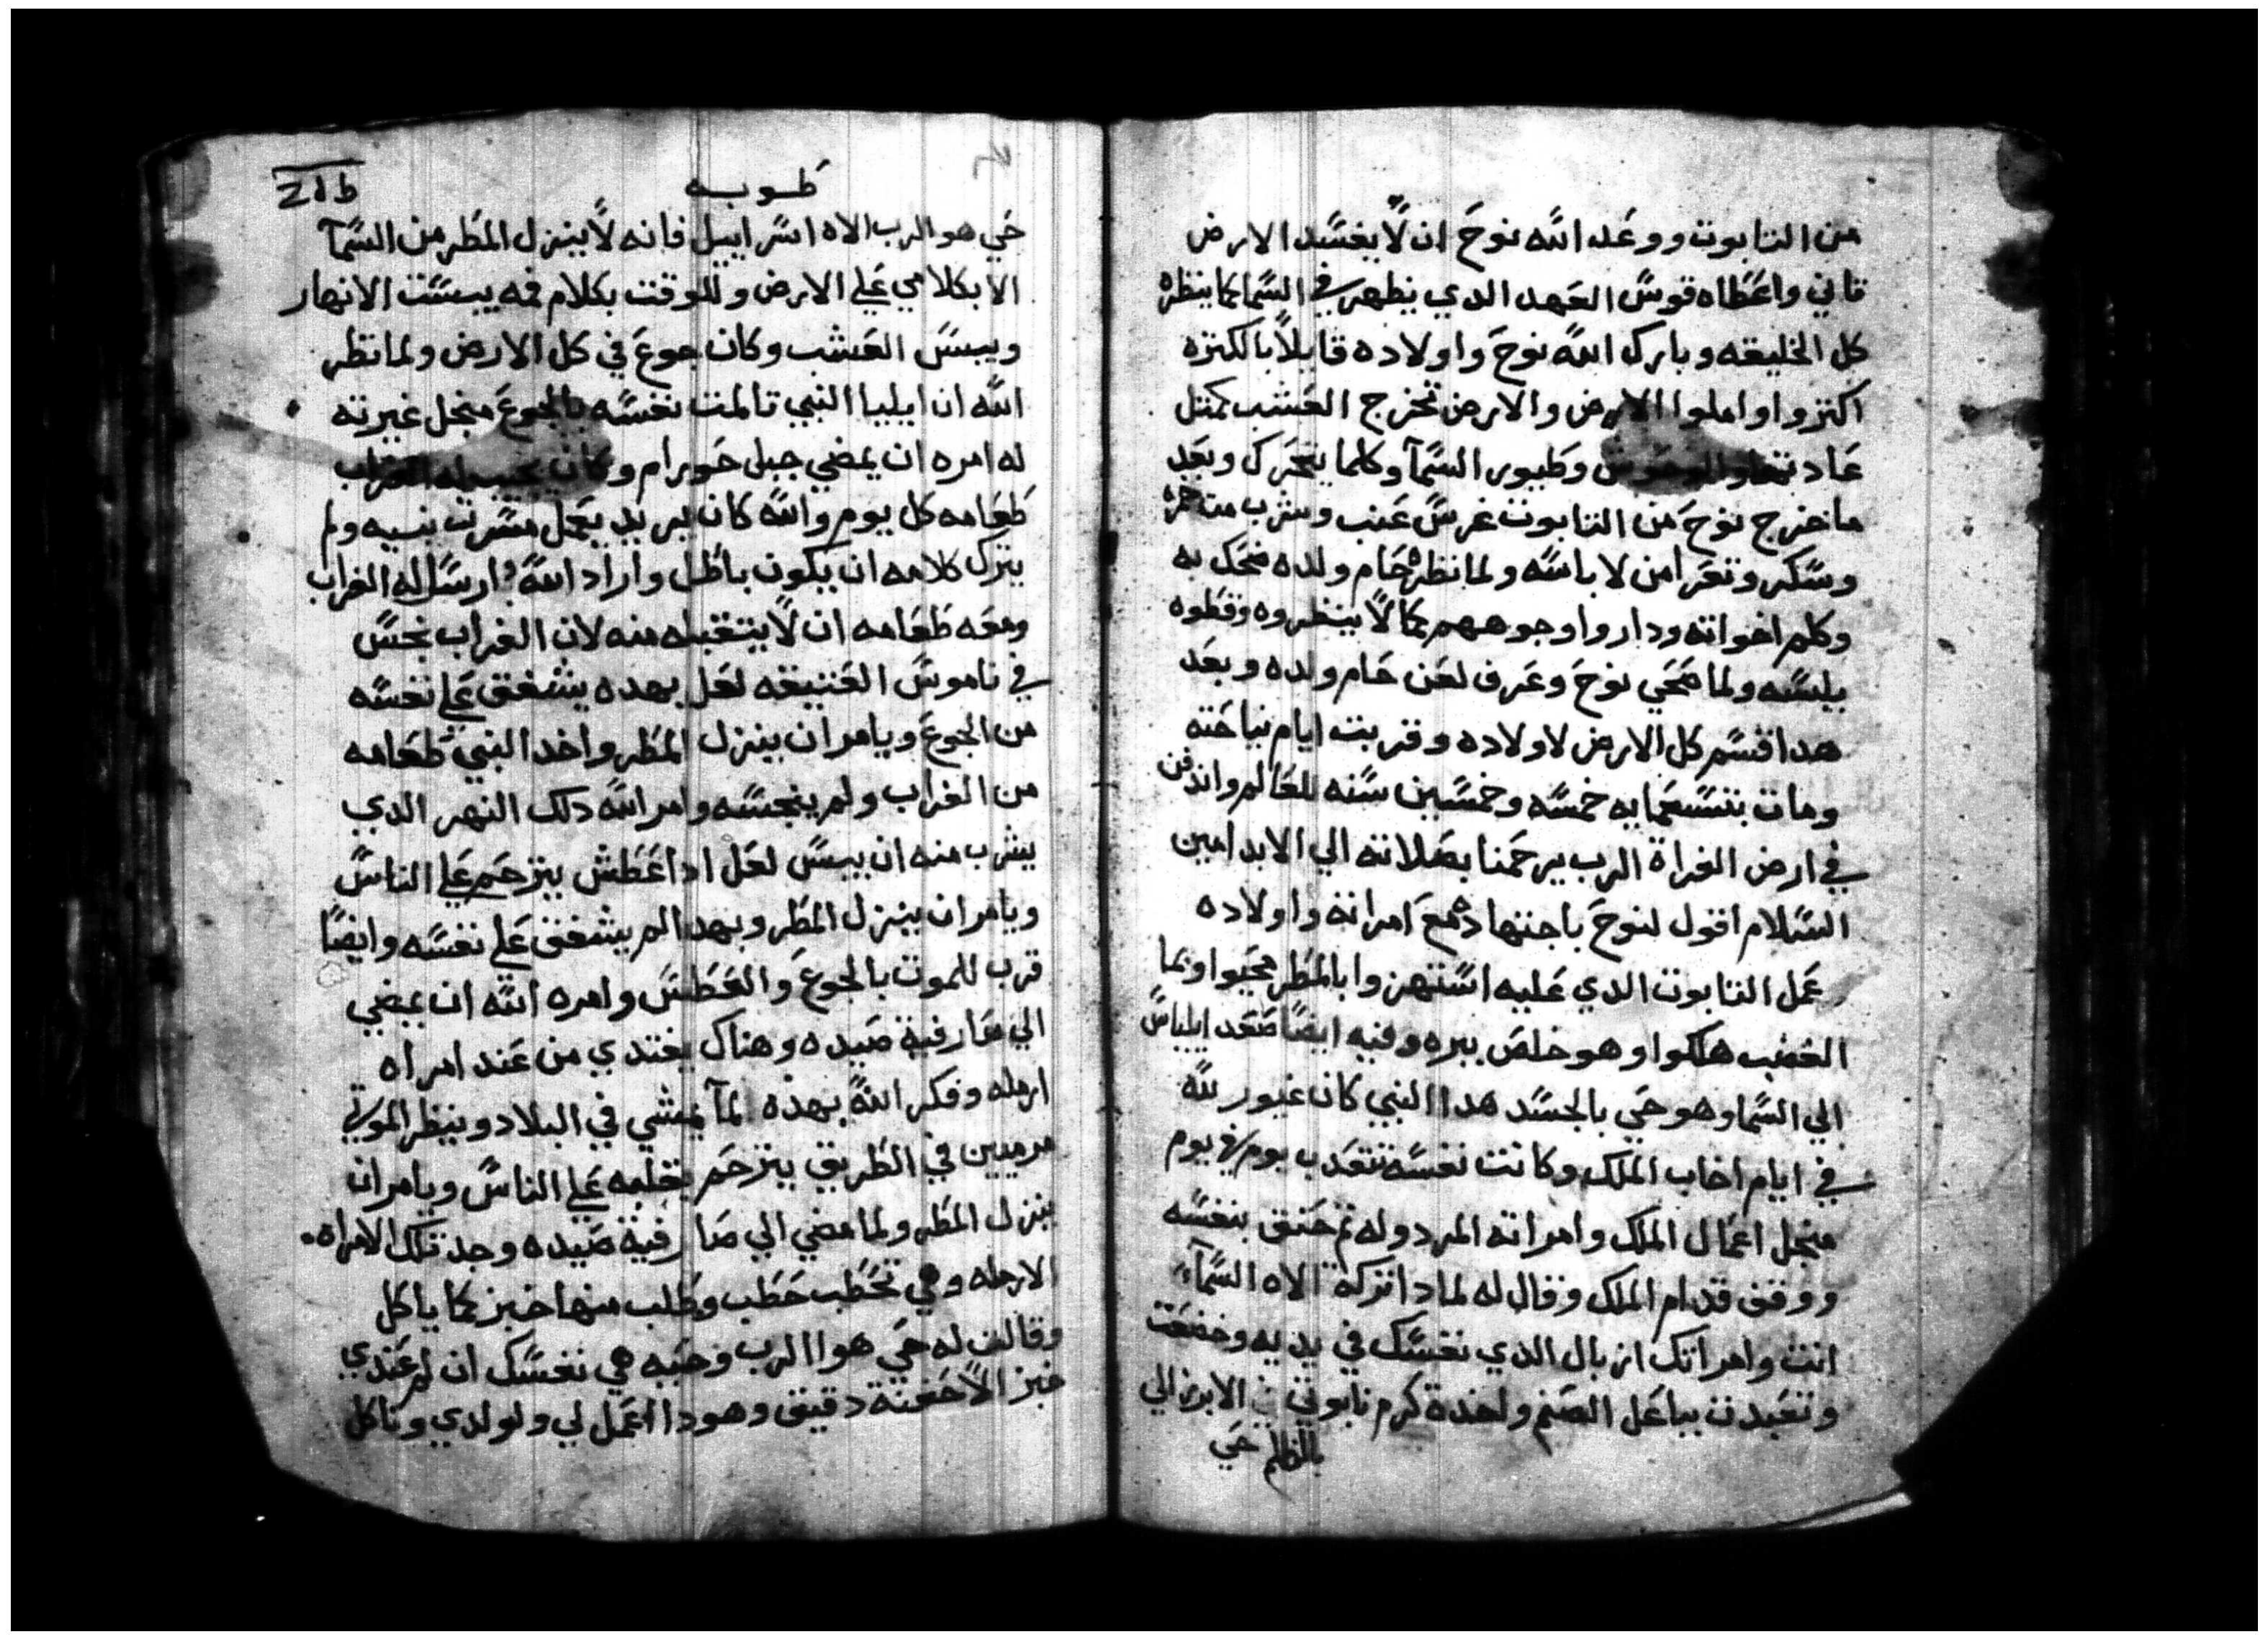 من التابوت ووعد الله نوح ان لا يفسد الارض
تاني واعطاه قوس العهد الدي يظهر في السما كما ينظره
كل الخليقه وبارك الله نوح واولاده قايلا بالكتره
اكتروا واملوا الارض والارض تخرج العشب كمتل
عادتها والوحوش وطيور السمآ وكلما يتحرك وبعد
ما خرج نوح من التابوت غرس عنب وشرب من خمره
وسكر وتعرا من لاباسه ولما نظره حام ولده ضحك به
وكلم اخواته وداروا وجوههم كما لا ينظروه وغطوه
بلبسه ولما صحي نوح وعرف لعن حام ولده وبعد
هدا قسم كل الارض لاولاده وقربت ايام نياحته
ومات بتسعمايه خمسه وخمسين سنه للعالم واندفن
في ارض الفراة الرب يرحمنا بصلاته الي الابد امين
السلام اقول لنوح باجتهاده مع امراته واولاده
عمل التابوت الدي عليه استهزوا بالمطر محيوا وبما
الغضب هلكوا وهو خلص ببره وفيه ايضا صعد ايلياس
الي السما وهو حي بالجسد هدا النبي كان غيور لله
في ايام اخاب الملك وكانت نفسه تتعدب يوم في يوم
منجل اعمال الملك وامراته المردوله تم حنق بنفسه
ووقف قدام الملك وقال له لمادا تركة الاه السمآ
انت وامراتك ازبال الدي نفسك في يديه وخضعت
وتعبدت بباعل الصنم واخدة كرم نابوتي الابرزالي
بالظلم حي
طوبه
حي هو الرب الاه اسراييل فانه لا ينزل المطر من السمآ
الا بكلامي علي الارض وللوقت بكلام فمه يبست الانهار
ويبس العشب وكان جوع في كل الارض ولما نظر
الله ان ايليا النبي تالمت نفسه بالجوع منجل غيرته
له امره ان يمضي جبل حورام وكان يجيب له الغراب
طعامه كل يوم والله كان يريد يعمل مسرت نبيه ولم
يترك كلامه ان يكون باطل واراد الله ارسال له الغراب
ومعه طعامه ان لا يتقبله منه لان الغراب نجس
في ناموس العتيقه لعل بهده يشفق علي نفسه
من الجوع ويامر ان ينزل المطر واخد النبي طعامه
من الغراب ولم ينجسه وامر الله دلك النهر الدي
يشرب منه ان يبس لعل ادا عطش يترحم علي الناس
ويامر ان ينزل المطر وبهدا لم يشفق علي نفسه وايضا
قرب للموت بالجوع والعطش وامره الله ان يمضي
الي صارفية صيده وهناك يغتدي من عند امراه
ارمله وفكر الله بهذه لمآ يمشي في البلاد وينظر الموتي
مرميين في الطريق يترحم بقلبه علي الناس ويامر ان
ينزل المطر ولما مضي الي صارفية صيده وجد تلك الامراه
الارمله وهي تحطب حطب وطلب منها خبز كما ياكل
وقالت له حي هو الرب وحيه هي نفسك ان لم عندي
خبز الا حفنة دقيق وهودا اعمل لي ولولدي وناكل